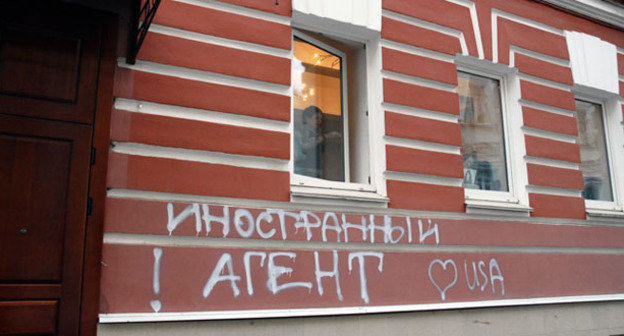 ИНОСТРАННЫЙ
! АГЕНТ ♡ USA